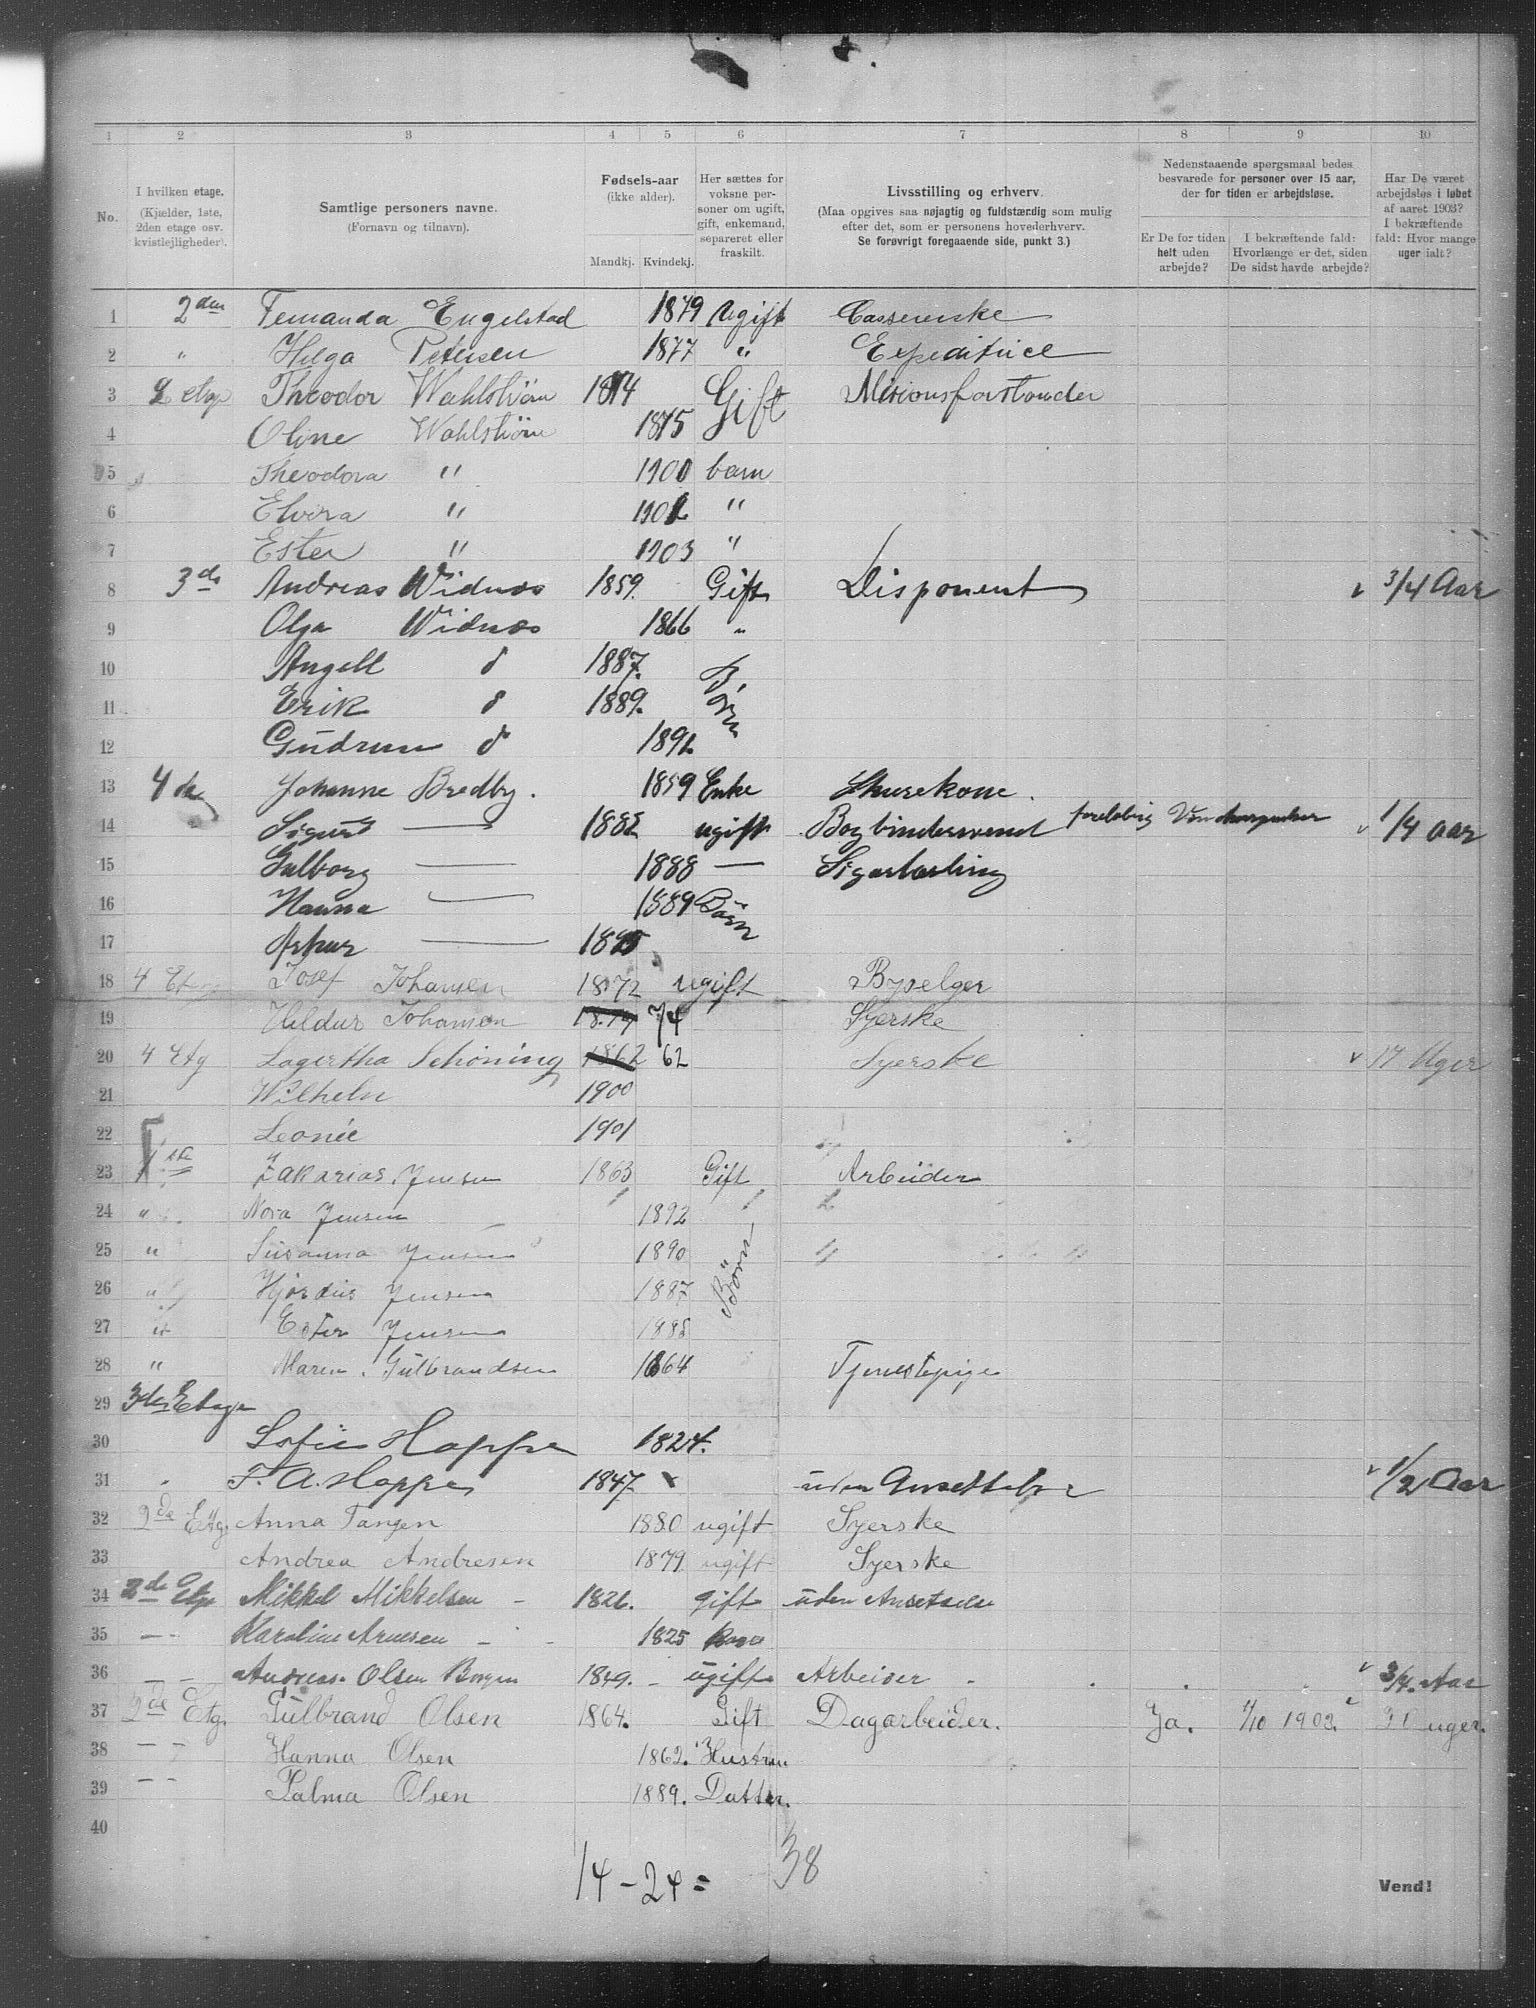 1 2 3 4 5 6 7 8 9 10
No.
I hvilken etage. (Kjælder, 1ste, 2den etage osv. kvistlejligheder).
Samtlige personers navne. (Fornavn og tilnavn).
Fødsels-aar (ikke alder).
Mandkj. Kvindekj.
Her sættes for voksne personer om ugift, gift, enkemand, separeret eller fraskilt.
Livsstilling og erhverv. (Maa opgives saa nøjagtig og fuldstændig som mulig efter det, som er personens hovederhverv. Se forøvrigt foregaaende side, punkt 3.)
Nedenstaaende spørgsmaal bedes besvarede for personer over 15 aar, der for tiden er arbejdsløse.
Er De for tiden helt uden arbejde?
I bekræftende fald: Hvorlænge er det, siden De sidst havde arbejde?
Har De været arbejdsløs i løbet af aaret 1903? I bekræftende fald: Hvor mange uger ialt?
1 2den Fernanda Engelstad 1879 Ugift Casserske
2 " Helga Petersen 1877 " Expeditrice
3 2 etg Theodor Wahlstrøm 1874 Gift Misionsforstander
4 Oline Wahlstrøm 1875
5 Theodora " 1900 barn
6 Elvira " 1902 "
7 Ester " 1903 "
8 3de Andreas Widnæs 1859. Gift Disponent v 3/4 Aar
9 Olga Widnæs 1866 "
10 Angell d 1887. Børn
11 Erik d 1889.
12 Gudrun d 1892
13 4de Johanne Bredby. 1859 Enke Skurekone.
14 Sigurd — 1882 ugift Bogbindersvend foreløbig v 1/4 aar
15 — 1888 —
16 Hanna — 1889 Børn
17 Arthur — 1895
18 4 Josef Johansen 1872 ugift Bypelger
19 Hildur Johansen 74 Syerske
20 4 Etg Lagertha Schöning 1862 62 Syerske v 17 Uger
21 Wilhelm 1900
22 Leonie 1901
23 1ste Zakarias Jensen 1863 Gift Arbeider
24 " Nora Jensen 1892
25 " Susanna Jensen 1890 Börn
26 " Hjørdis Jensen 1887
27 " Ester Jensen 1885
28 " Maren Gulbrandsen 1864 Tjenestepige
29 3de Etage
30 Sofie Hoppe 1824.
31 " F. A. Hoppe 1847 x uden Ansettelse v 1/2 Aar
32 2de Etg. Anna Tangen 1880 ugift Syerske
33 Andrea Andresen 1879 ugift Syerske
34 2de Etg Mikkel Mikkelsen - 1826. gift uden Ansettelse
35 — Karoline Arnesen - - 1825
36 — — Andreas Olsen Borgen 1849. - ugift Arbeider - v 3/4 Aar
37 2de Etg. Gulbrand Olsen 1864. Gift Dagarbeider. Ja. 1/10 1903. v 31 uger.
38 — — Hanna Olsen 1862. Hustru
39 — — Palma Olsen 1889. Datter.
40
14 - 24 = 38
Vend!